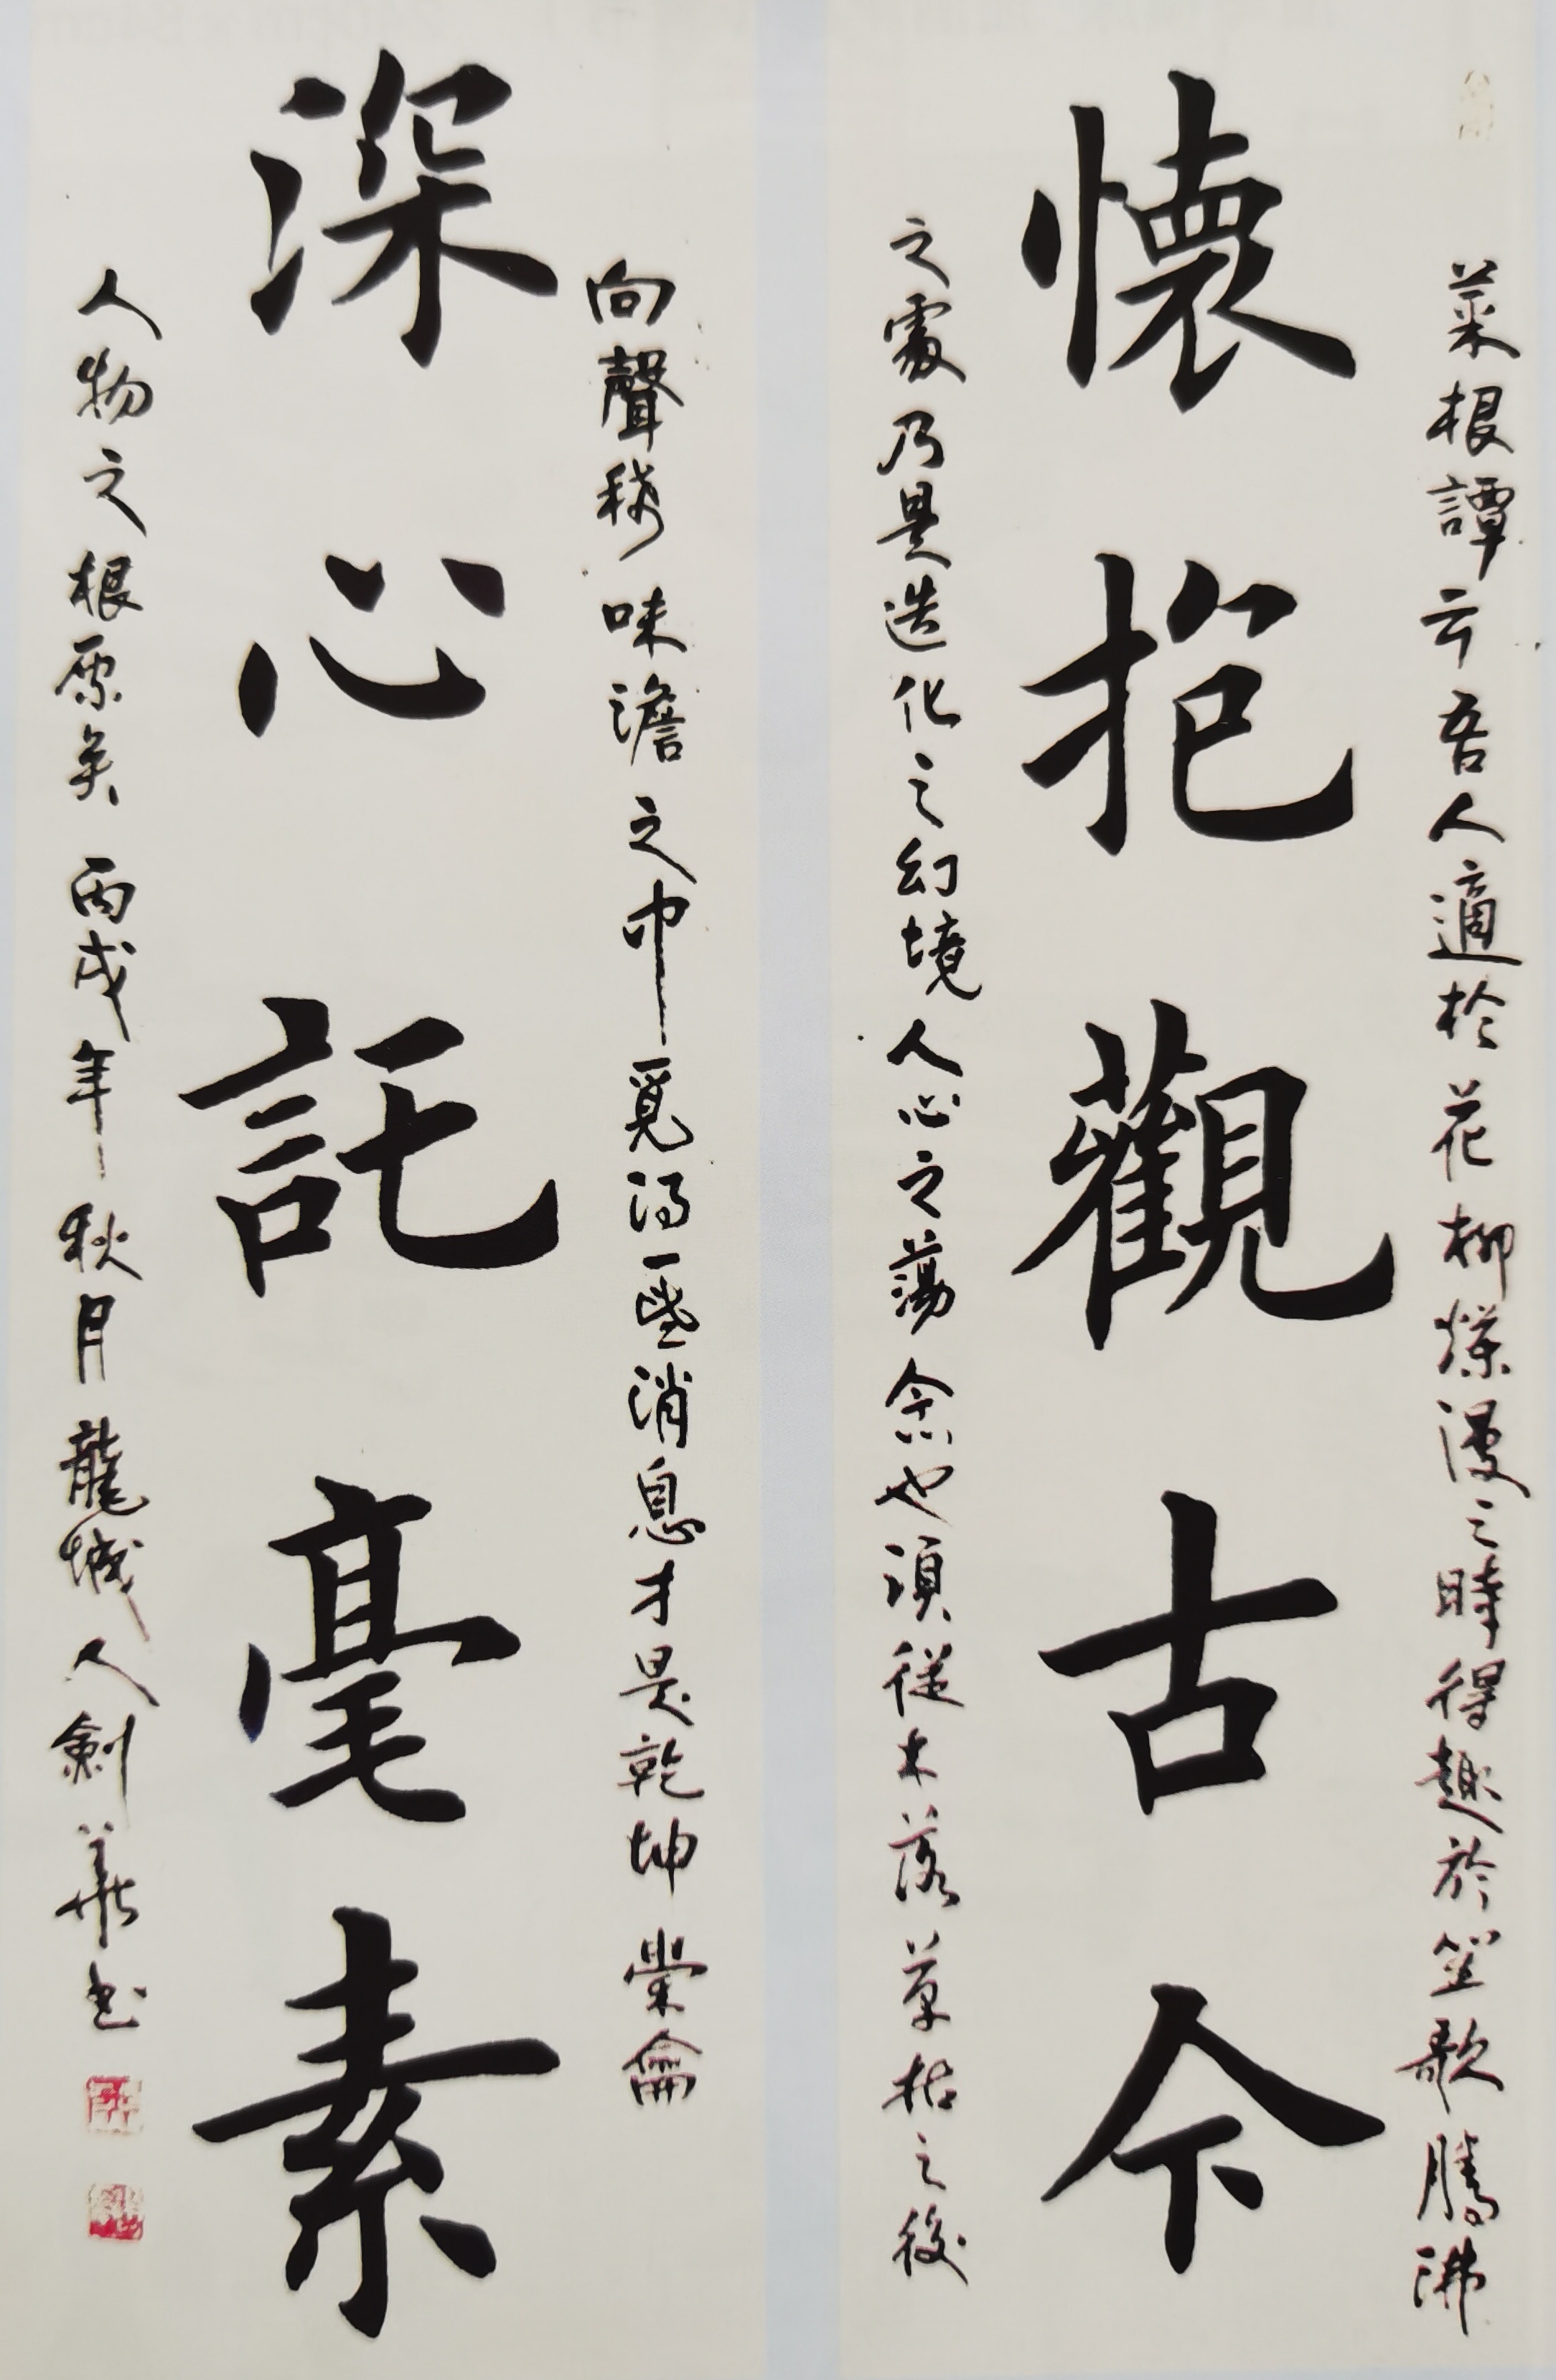 菜根譚云吾人適於花柳爛漫之時得趣於笙歌騰沸
懷抱觀古今
之處乃是造化之幻境人心之蕩念也須從木落草枯之後
向聲稀味澹之中覓得一些消息才是乾坤橐龠
深心託毫素
人物之根原矣 丙戌年秋月龍城人劍華书